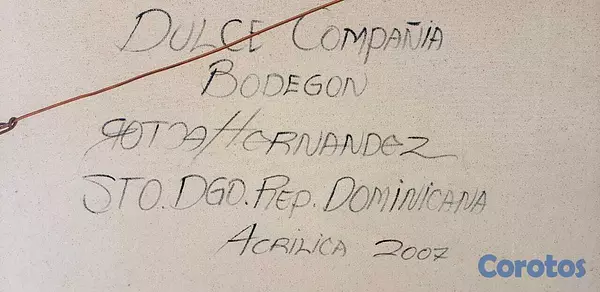 DULCE COMPAÑIA
BODEGON
HERNANDEZ
STO. DGO. REP. DOMINICANA
ACRILICA 2007
Corotos